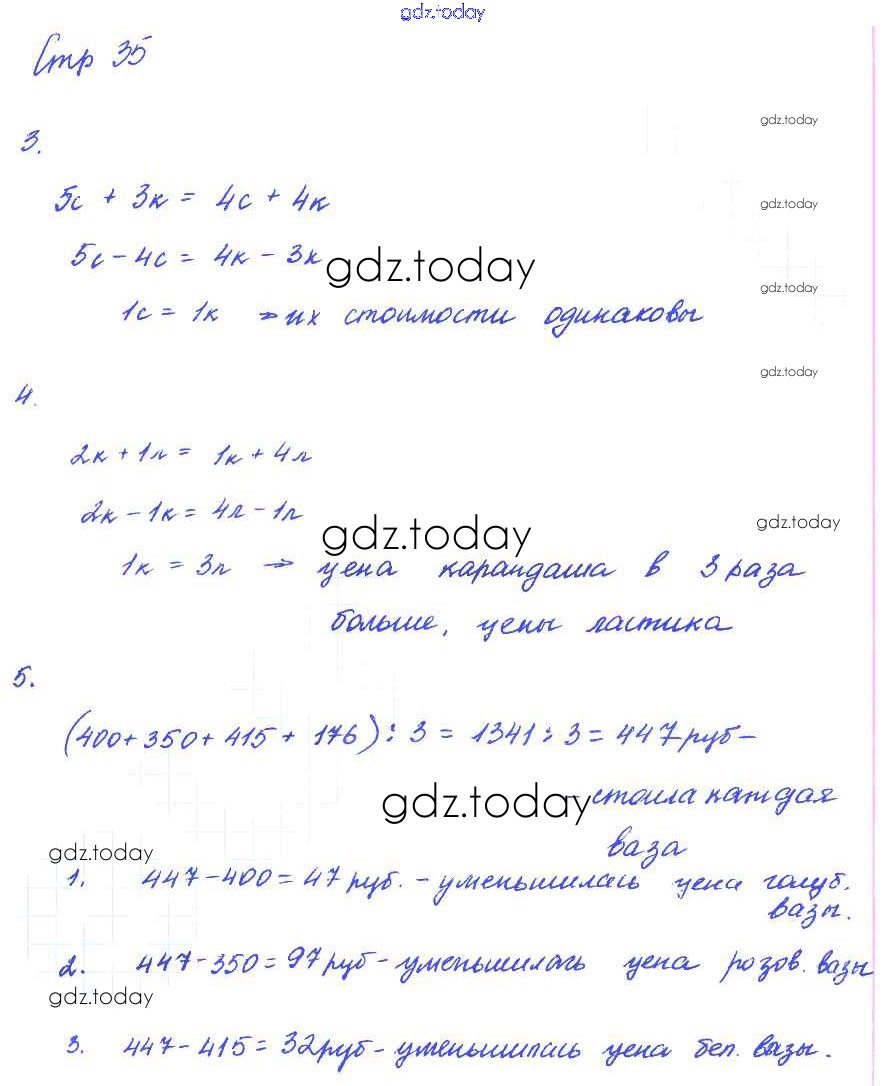 gdz.today
Стр 35
gdz.today
3.
5с + 3к = 4с + 4к
gdz.today
5с - 4с = 4к - 3к
gdz.today
gdz.today
1с = 1к → их стоимости одинаковы
gdz.today
4.
2к + 1л = 1к + 4л
2к - 1к = 4л - 1л
gdz.today
gdz.today
1к = 3л → цена карандаша в 3 раза
больше, цены ластика
5.
(400 + 350 + 415 + 176) : 3 = 1341 : 3 = 447 руб -
gdz.today
- стоила каждая
ваза
gdz.today
1. 447 - 400 = 47 руб. - уменьшилась цена голуб.
вазы.
2. 447 - 350 = 97 руб - уменьшилась цена розов. вазы
gdz.today
3. 447 - 415 = 32 руб - уменьшилась цена бел. вазы.